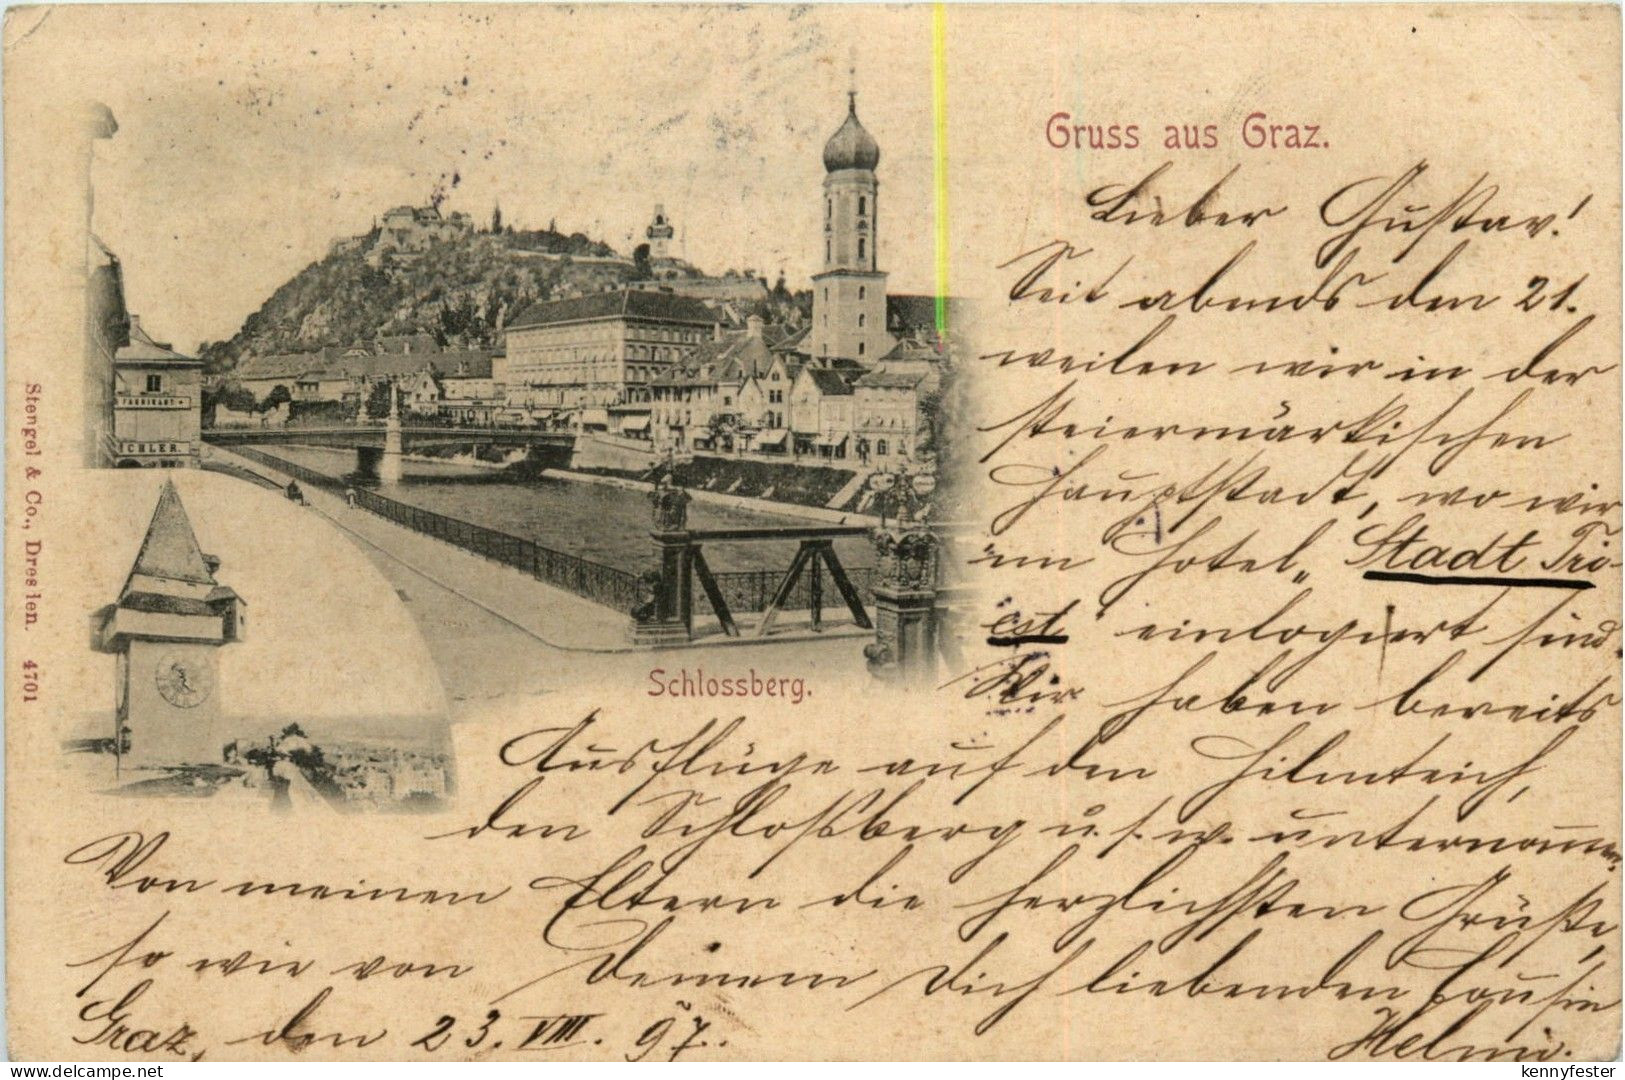 Gruss aus Graz.
Lieber Gustav!
Seit abends den 21.
weilen wir in der
steiermärkischen
Hauptstadt, wo wir
im Hotel „Stadt Tri-
est“ einlogiert sind.
Wir haben bereits
Ausflüge auf den Hilmteich,
den Schloßberg u. s. w. unternommen.
Von meinen Eltern die herzlichsten Grüße,
so wie von Deinem Dich liebenden Cousin
Graz, den 23. VIII. 97. Helmi.
Schlossberg.
FABRIKART
ICHLER.
Stengel & Co., Dresden. 4701
delcampe.net
kennyfester